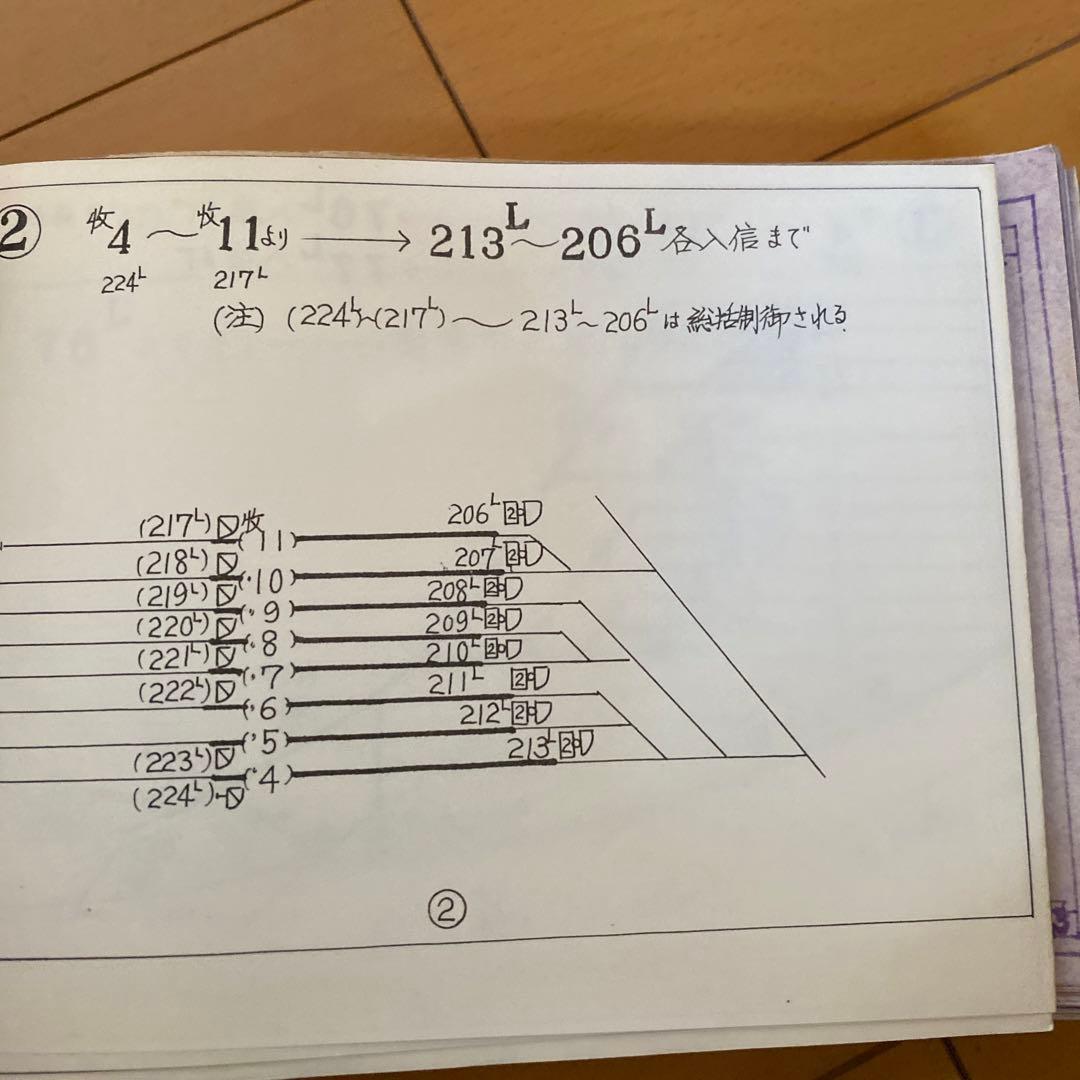 ② 收4 〜 收11より → 213L〜206L 各入信まで
224L 217L
(注) (224L)〜(217L) 〜 213L〜206Lは総括制御される.
(217L) 收 11 206L 2
(218L) 10 207L 2
(219L) 9 208L 2
(220L) 8 209L 2
(221L) 7 210L 2
(222L) 6 211L 2
5 212L 2
(223L) 4 213L 2
(224L)
②